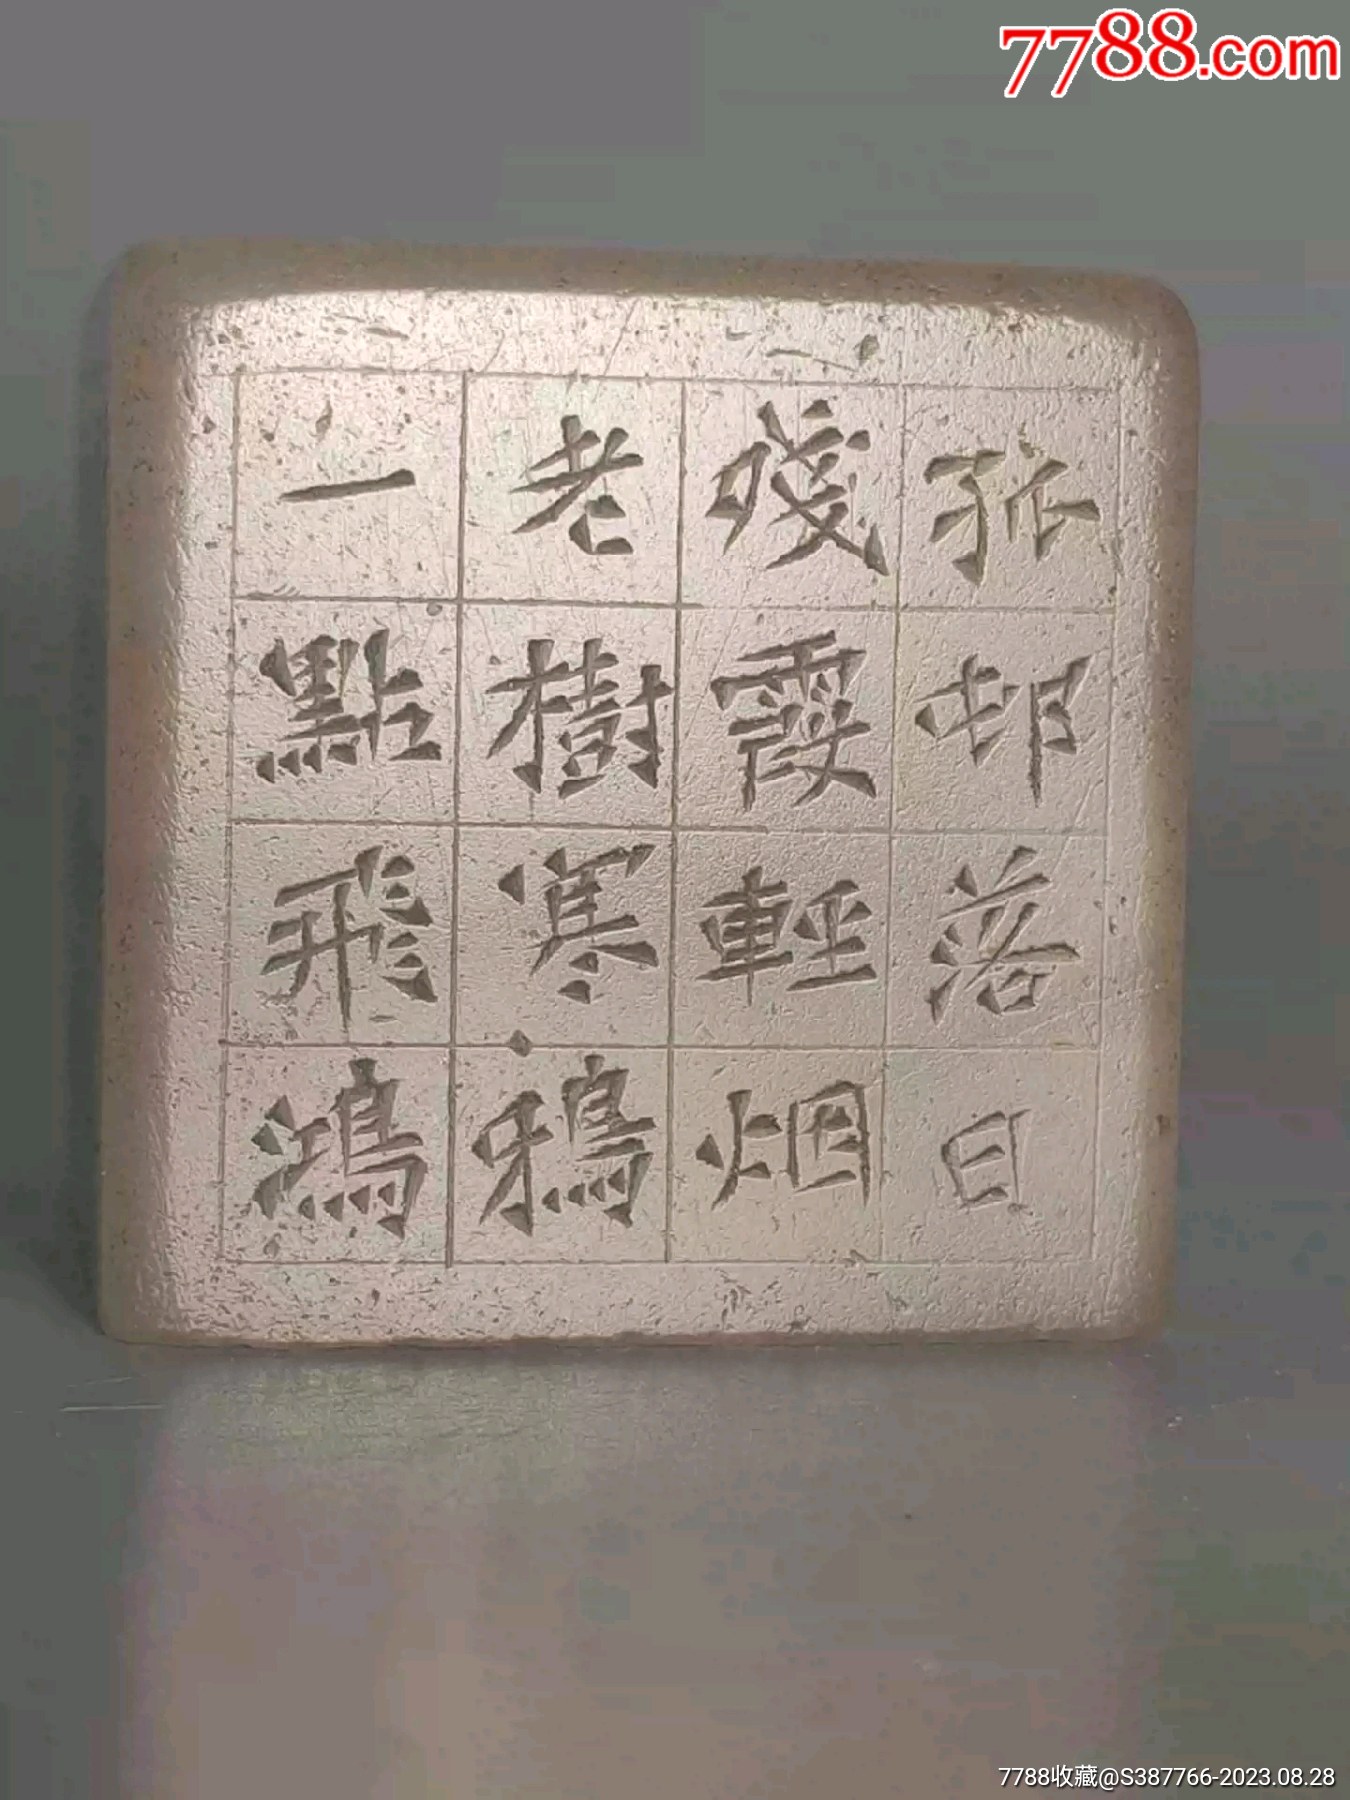 7788.com
孤邨落日
殘霞輕烟
老樹寒鴉
一點飛鴻
7788收藏@S387766-2023.08.28